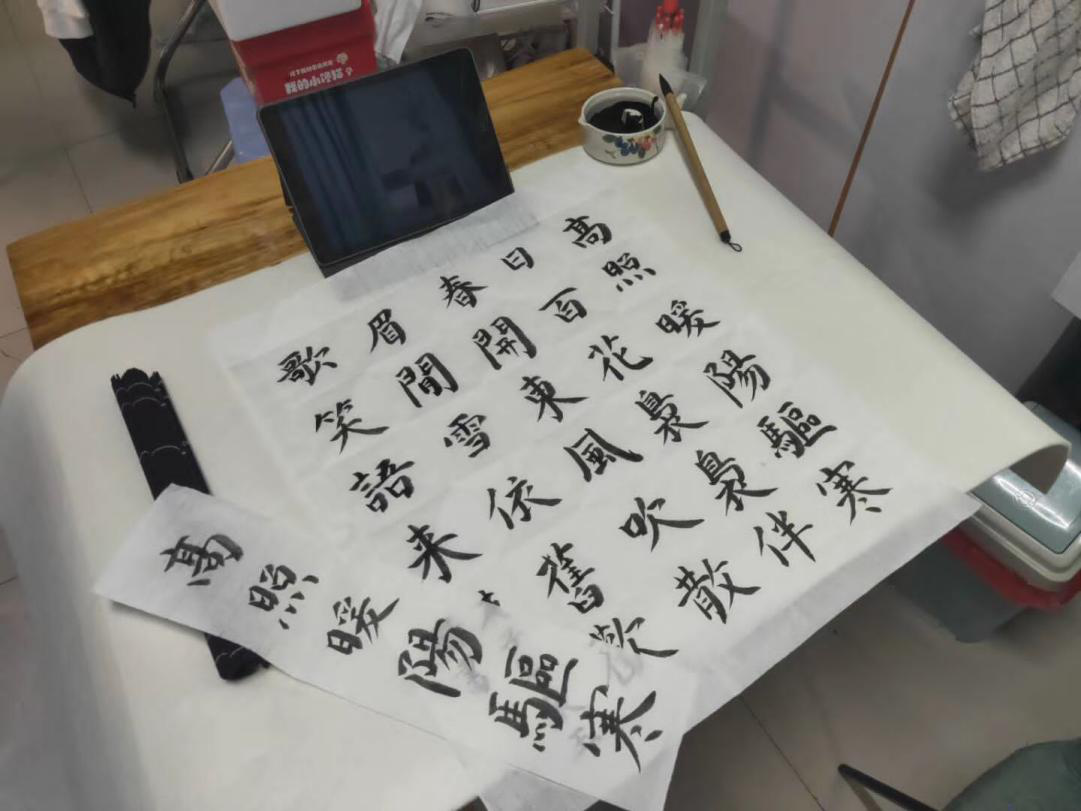 高照暖陽驅寒
日百花裊裊伴
春開東風吹散
眉間雪依舊歡
歌笑語来
高照暖陽驅寒